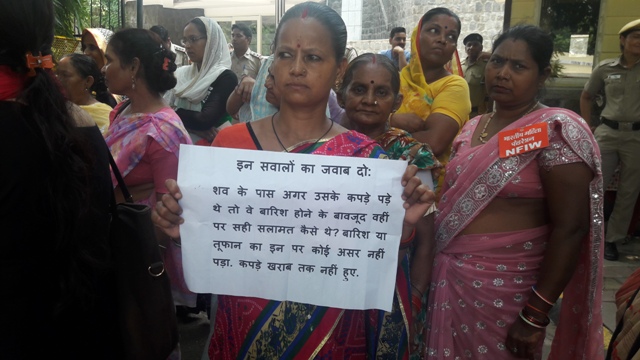 इन सवालों का जवाब दो:
शव के पास अगर उसके कपड़े पड़े
थे तो वे बारिश होने के बावजूद वहीं
पर सही सलामत कैसे थे? बारिश या
तूफान का इन पर कोई असर नहीं
पड़ा. कपड़े खराब तक नहीं हुए.
भारतीय महिला
फेडरेशन
NFIW